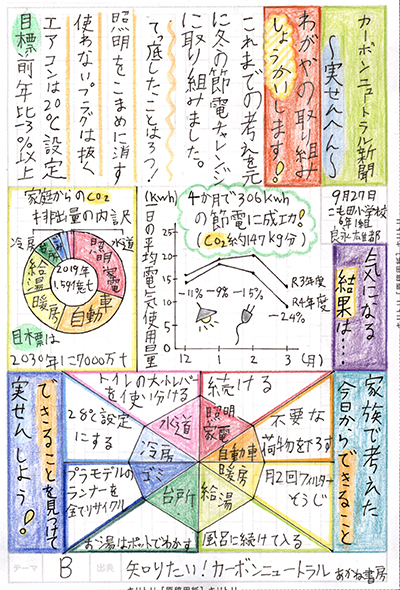 カーボンニュートラル新聞
～実せんへん～
わがやの取り組み
しょうかいします!
これまでの考えを元
に冬の節電チャレンジ
に取り組みました。
てっ底したことは3つ!
照明をこまめに消す
使わないプラグは抜く
エアコンは20℃設定
目標 前年比-3%以上
9月27日
気になる
結果は……
家庭からのCO₂
排出量の内訳
2019年
1,591億t
照明
家電
自動車
暖房
給湯
冷房
水道
目標は
2030年に7000万t
4か月で306kwh
の節電に成功!
(CO₂約147kg分)
(kwh)
日の平均電気使用量
25
20
15
10
5
0
-11%
-9%
-15%
-24%
R3年度
R4年度
12
1
2
3
(月)
家族で考えた
今日からできること
続ける
照明
家電
不要な
荷物を下ろす
自動車
月2回フィルター
そうじ
暖房
風呂に続けて入る
給湯
お湯はポットでわかす
台所
プラモデルの
ランナーを
全てリサイクル
ゴミ
28℃設定
にする
冷房
トイレの大小レバー
を使い分ける
水道
できることを見つけて
実せんしよう!
テーマ
B
出典
知りたい!カーボンニュートラル あかね書房